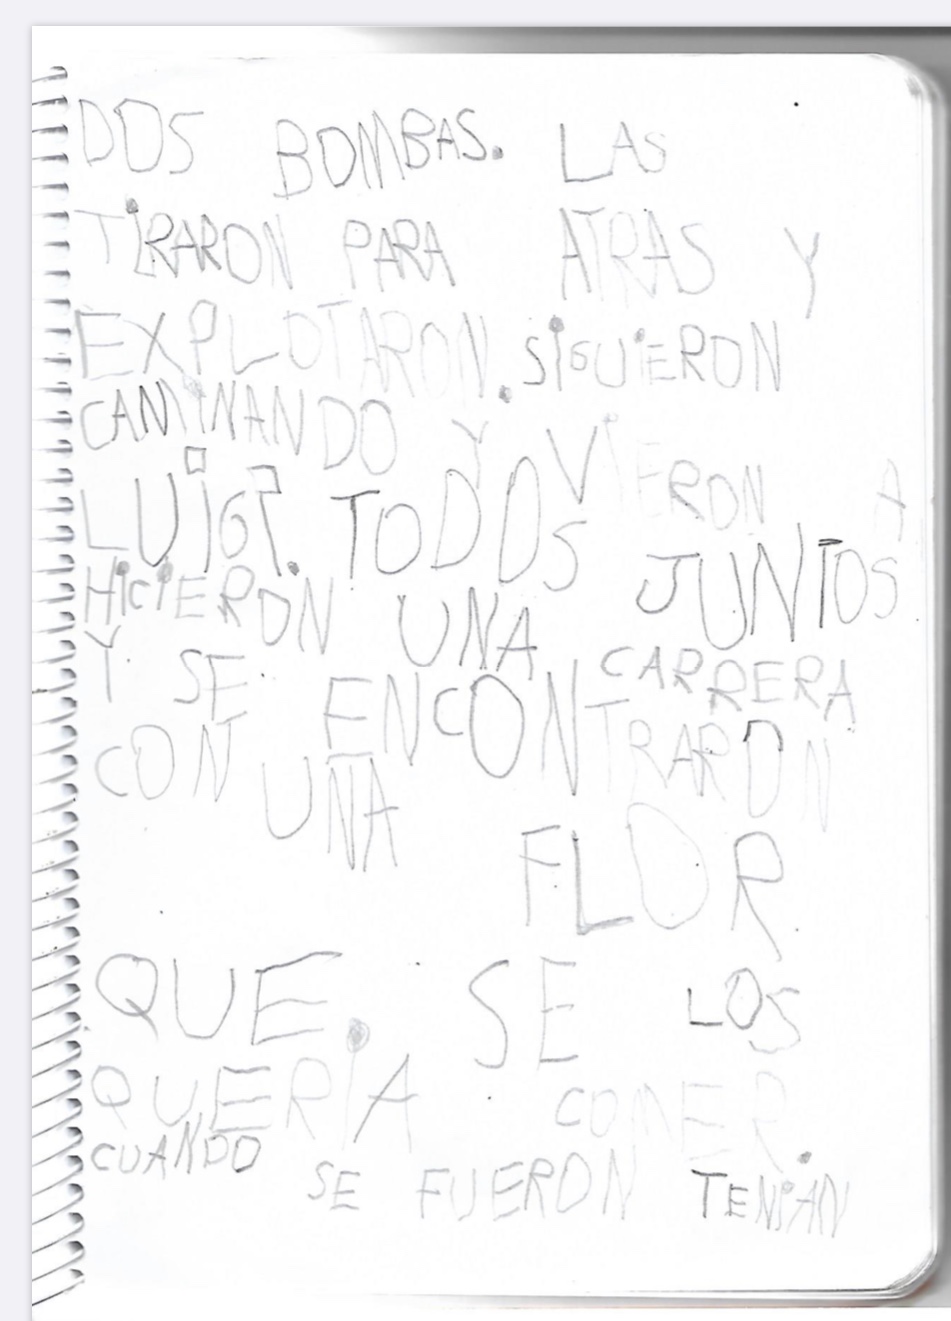 DOS BOMBAS. LAS
TIRARON PARA ATRAS Y
EXPLOTARON. SIGUIERON
CAMINANDO Y VIERON A
LUIGI. TODOS JUNTOS
HICIERON UNA CARRERA
Y SE ENCONTRARON
CON UNA FLOR
QUE SE LOS
QUERIA COMER.
CUANDO SE FUERON TENIAN